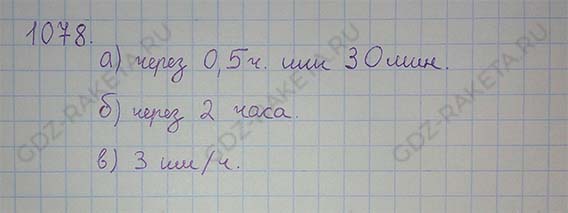 1078.
а) через 0,5 ч. или 30 мин.
б) через 2 часа.
в) 3 км/ч.
GDZ-RAKETA.RU
GDZ-RAKETA.RU
GDZ-RAKETA.RU